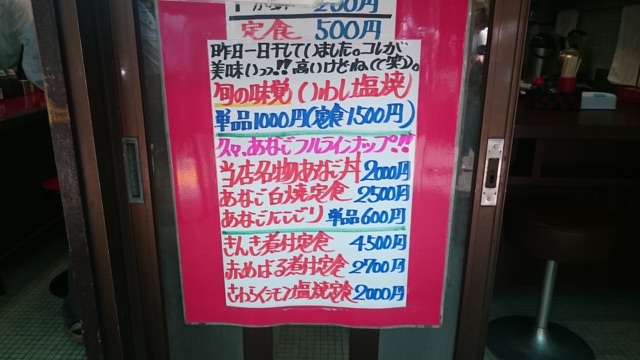 200円
定食 500円
昨日一日干していました。コレが、
美味いっっ!!高いけどね(笑)。
旬の味覚(いわし塩焼)
単品1000円(定食1500円)
久々、あなごフルラインナップ!!
当店名物あなご丼 2000円
あなご白焼定食 2500円
あなごにこごり 単品600円
きんき煮付定食 4500円
赤めばる煮付定食 2700円
さわらレモン塩焼定食 2000円